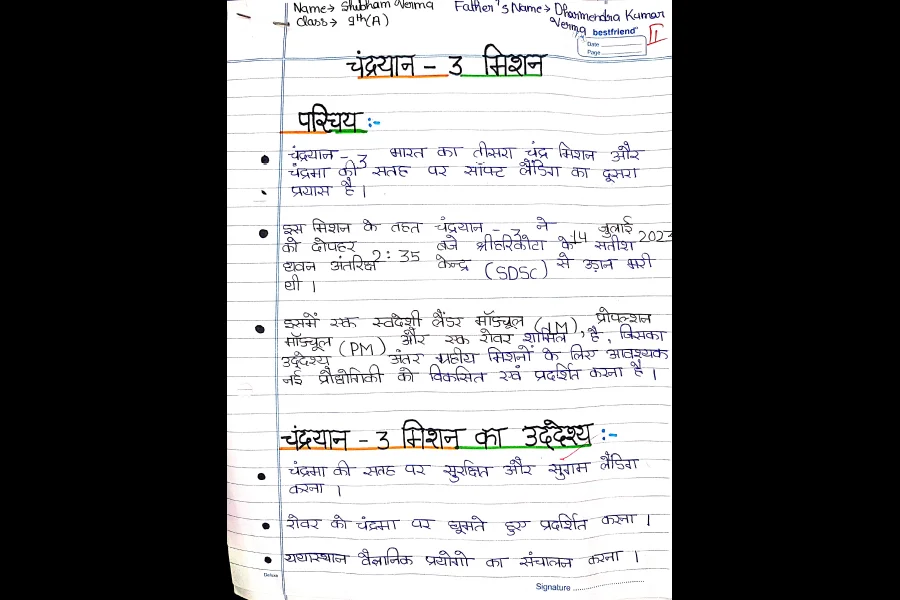 Name→ Shubham Verma Father's Name→ Dharmendra Kumar
Class→ 9th(A) Verma
bestfriend
Date
Page
चंद्रयान - 3 मिशन
परिचय :-
चंद्रयान - 3 भारत का तीसरा चंद्र मिशन और
चंद्रमा की सतह पर सॉफ्ट लैंडिंग का दूसरा
प्रयास है।
इस मिशन के तहत चंद्रयान - 3 ने 14 जुलाई 2023
को दोपहर 2:35 बजे श्रीहरिकोटा के सतीश
धवन अंतरिक्ष केन्द्र (SDSC) से उड़ान भरी
थी।
इसमें एक स्वदेशी लैंडर मॉड्यूल (LM), प्रोपल्शन
मॉड्यूल (PM) और एक रोवर शामिल है, जिसका
उद्देश्य अंतर ग्रहीय मिशनों के लिए आवश्यक
नई प्रौद्योगिकी को विकसित एवं प्रदर्शित करना है।
चंद्रयान - 3 मिशन का उद्देश्य :-
चंद्रमा की सतह पर सुरक्षित और सुगम लैंडिंग
करना।
रोवर को चंद्रमा पर घूमते हुए प्रदर्शित करना।
यथास्थान वैज्ञानिक प्रयोगो का संचालन करना।
Deluxe
Signature